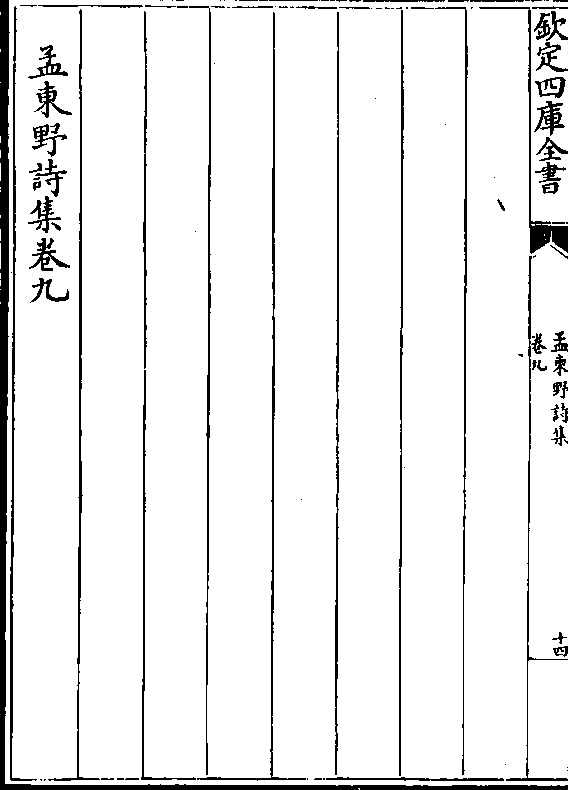 欽定四庫全書
孟東野詩集
卷九
十四
孟東野詩集卷九